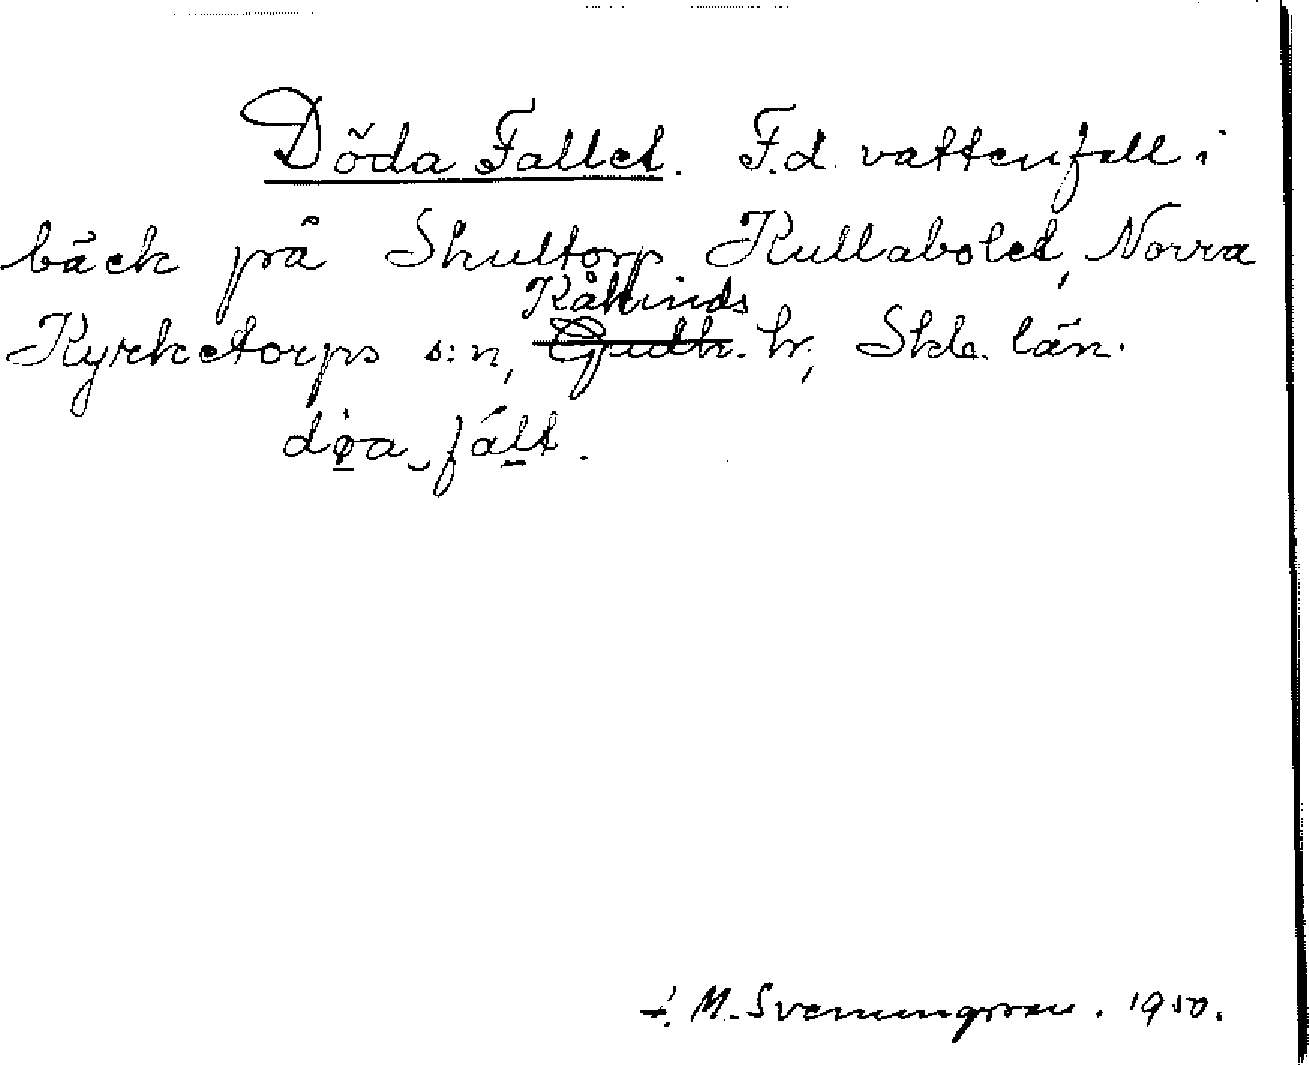 Döda Fallet. F.d. vattenfall i
bäck på Skultorp Kullabolet, Norra
Kåkinds
Kyrketorps s:n, Gudh. hr, Skb. län.
döa fált.
M. Svenungsson. 1950.